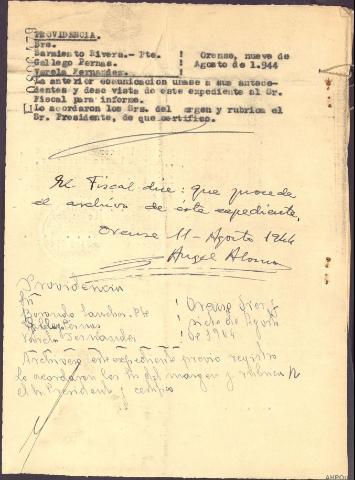 PROVIDENCIA.
Sres.
Sarmiento Rivera.- Pte. ! Orense, nueve de
Gallego Pernas. ! Agosto de 1.944
Varela Fernandez. !
La anterior comunicacion unase a sus antece-
dentes y dese vista de este expediente al Sr.
Fiscal para informe.
Lo acordaron los Srs. del margen y rubrica el
Sr. Presidente, de que certifico.
El Fiscal dice: que procede
el archivo de este expediente.
Orense 11 - Agosto 1944
Angel Alonso
Providencia
Pte
Pernas siete de Agosto
Varela Fernandez de 1944
Archivese este expediente previo registro
Lo acordaron los del margen y rubrica
el Sr Presidente y certifico
AHPOU